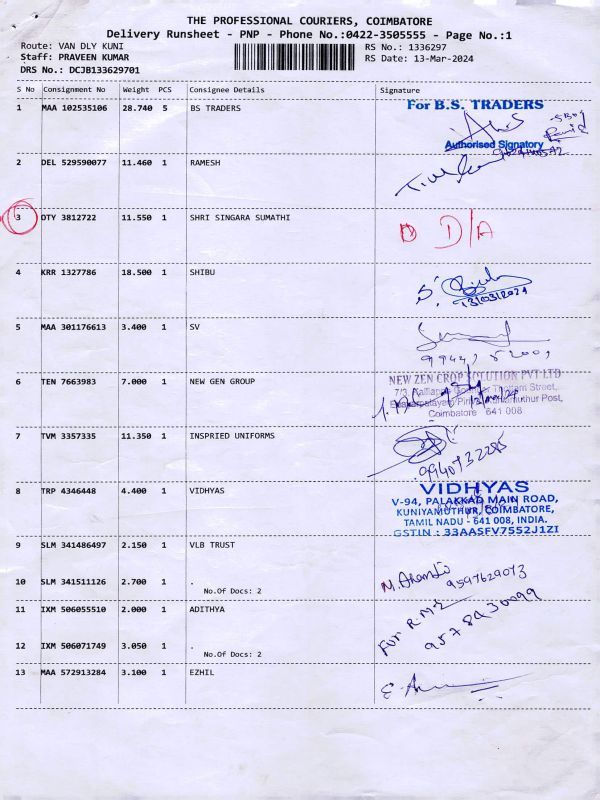 THE PROFESSIONAL COURIERS, COIMBATORE
Delivery Runsheet - PNP - Phone No.:0422-3505555 - Page No.:1
Route: VAN DLY KUNI RS No.: 1336297
Staff: PRAVEEN KUMAR RS Date: 13-Mar-2024
DRS No.: DCJB133629701
S No Consignment No Weight PCS Consignee Details Signature
1 MAA 102535106 28.740 5 BS TRADERS For B.S. TRADERS
Authorised Signatory
2 DEL 529590077 11.460 1 RAMESH
3 OTY 3812722 11.550 1 SHRI SINGARA SUMATHI D/A
4 KRR 1327786 18.500 1 SHIBU
13/03/2024
5 MAA 301176613 3.400 1 SV
6 TEN 7663983 7.000 1 NEW GEN GROUP NEW ZEN CROP SOLUTION PVT LTD
Street,
Post,
Coimbatore 641 008
7 TVM 3357335 11.350 1 INSPRIED UNIFORMS
9940732285
8 TRP 4346448 4.400 1 VIDHYAS VIDHYAS
V-94, PALAKKAD MAIN ROAD,
KUNIYAMUTHUR, COIMBATORE,
TAMIL NADU - 641 008, INDIA.
GSTIN : 33AASFV7552J1ZI
9 SLM 341486497 2.150 1 VLB TRUST
10 SLM 341511126 2.700 1 .
No.Of Docs: 2
9597629073
11 IXM 506055510 2.000 1 ADITHYA
For RMS
12 IXM 506071749 3.050 1 .
No.Of Docs: 2
13 MAA 572913284 3.100 1 EZHIL